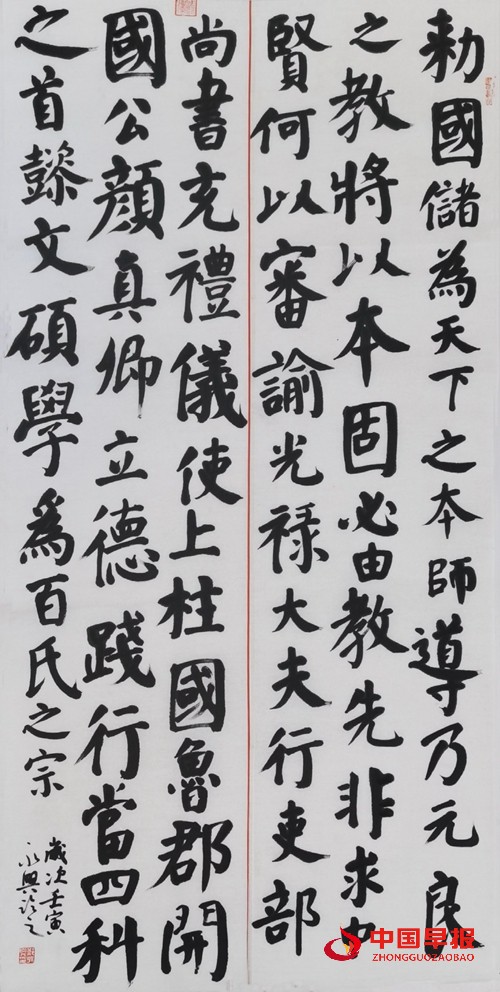 勅國儲為天下之本師導乃元良
之教將以本固必由教先非求中
賢何以審諭光祿大夫行吏部
尚書充禮儀使上柱國魯郡開
國公顏真卿立德踐行當四科
之首懿文碩學爲百氏之宗
歲次壬寅
永興
中国早报
ZHONGGUOZAOBAO